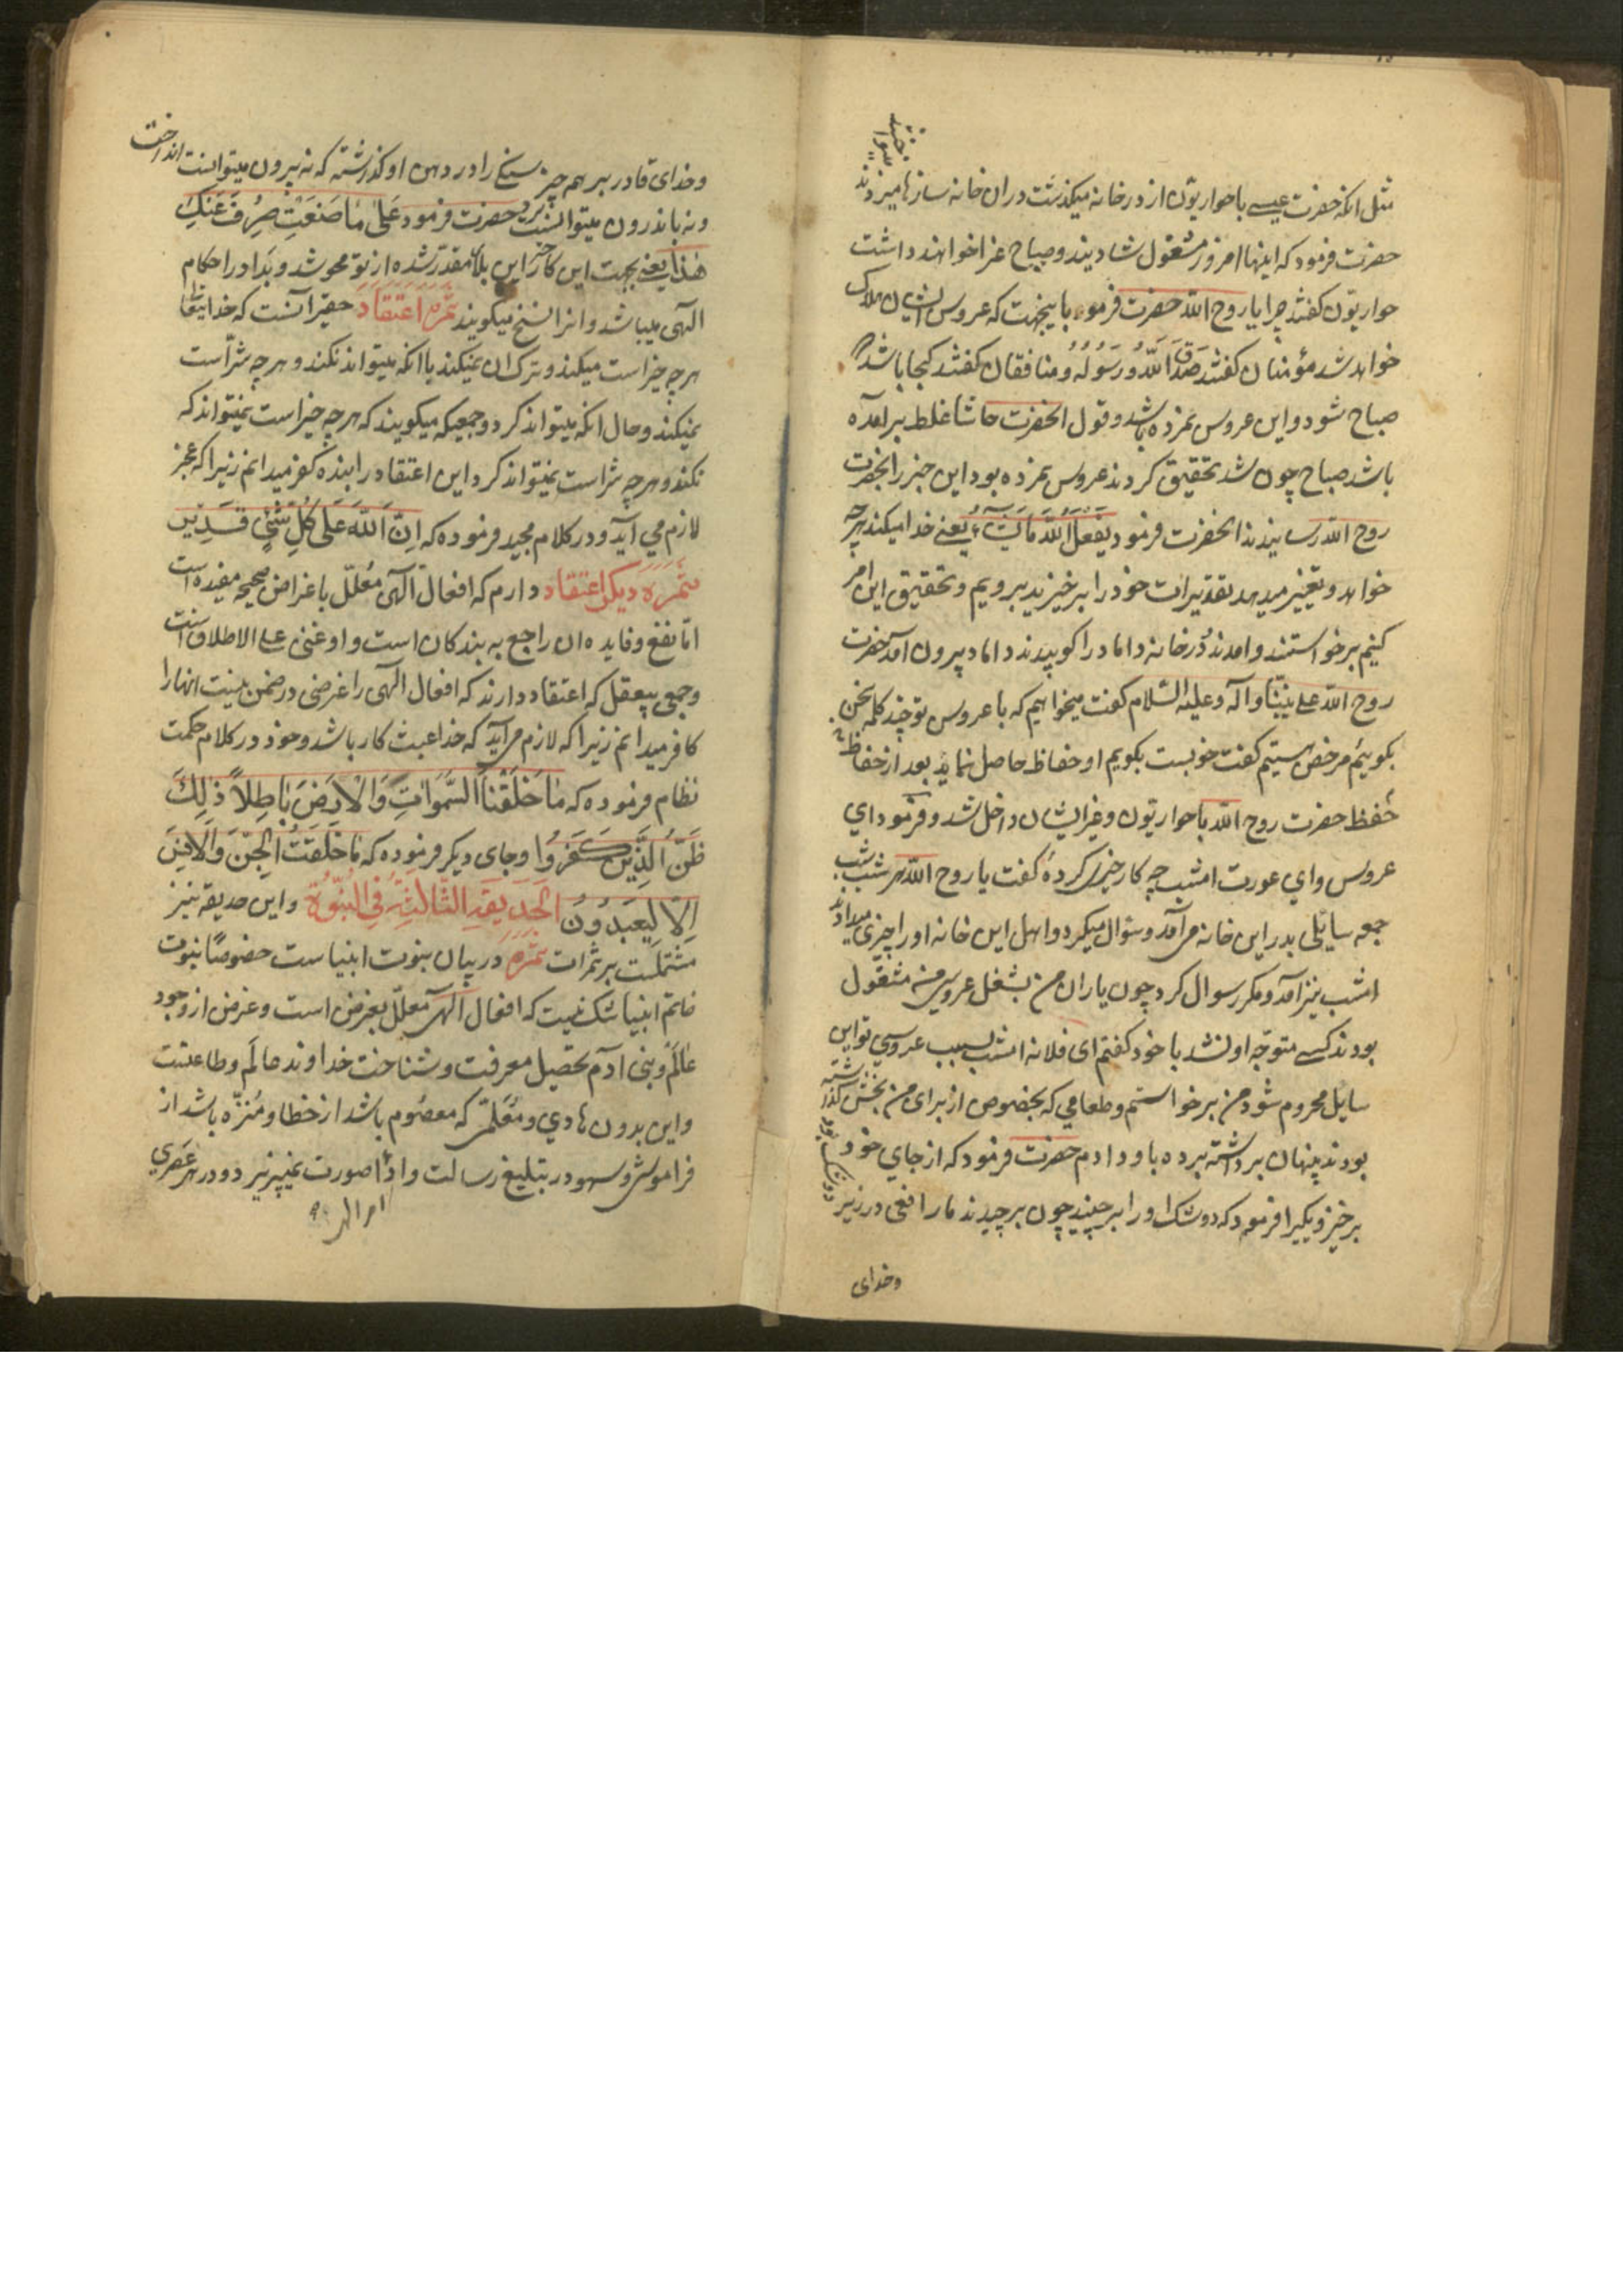 مثل انکه حضرت عیسی با حواریون از در خانه میکذشت دران خانه سازها میزدند
حضرت فرمود که اینها امروز مشغول شادیند و صباح عزا خواهند داشت
حواریون کفتند چرا یا روح الله حضرت فرمود باینجهت که عروس ایشان هلاک
خواهد شد مؤمنان کفتند صَدَقَ اللّهُ وَرَسُولُهُ و منافقان کفتند کجا باشد که
صباح شود و این عروس نمرده باشد و قول انحضرت حاشا غلط برآمده
باشد صباح چون شد تحقیق کردند عروس نمرده بود این خبر را بحضرت
روح الله رسانیدند انحضرت فرمود یَفْعَلُ اللّهُ مَا یَشَآءُ یعنی خدا میکند هرچه
خواهد و تغییر میدهد تقدیرات خود را برخیزید برویم و تحقیق این امر
کنیم برخواستند و امدند در خانه داماد را کوبیدند داماد بیرون آمد حضرت
روح الله علی نبینا واله وعلیه السلام کفت میخواهیم که با عروس تو چند کلمه سخن
بکوییم مرخص هستیم کفت خوبست بکویم او حفاظ حاصل نماید بعد از حفاظ
تحفظ حضرت روح الله با حواریون و غیر ایشان داخل شد و فرمود ای
عروس و ای عورت امشب چه کار خیری کردهٔ کفت یا روح الله هر شب شب
جمعه سایلی بدر این خانه می آمد و سؤال میکرد و اهل این خانه او را چیزی میدادند
امشب نیز آمد و مکرر سوال کرد چون یاران من بشغل عروسی من مشغول
بودند کسی متوجه او نشد با خود کفتم ای فلانه امشب بسبب عروسی تو این
سایل محروم شود من برخواستم و طعامی که بخصوص از برای من بخش کذاشته
بودند پنهان برداشته برده باو دادم حضرت فرمود که از جای خود
برخیز و یکیرا فرمود که دوشک او را برچیند چون برچیدند مار افعی در زیر
دوشک بود
وخدای
وخدای قادر بر همه چیز سیخ را در دهن او کذاشته که نه بیرون میتوانست انداخت
و نه باندرون میتوانست برد حضرت فرمود عَلیٰ مَا صَنَعْتِ صُرِفَ عَنْكِ
هٰذا یعنی بجهت این کار خیر این بلاء مقدر شده از تو محو شد و بدا در احکام
الهی میباشد و انرا نسخ میکویند ثمره اعتقاد حقیر آنست که خدایتعالی
هر چه خیر است میکند و ترک ان نمیکند با انکه میتواند نکند و هر چه شر است
نمیکند و حال انکه میتواند کرد و جمعیکه میکویند که هر چه خیر است نمیتواند که
نکند و هر چه شر است نمیتواند کرد این اعتقاد را بنده کفر میدانم زیرا که عجز
لازم می آید و در کلام مجید فرموده که اِنَّ اللّهَ عَلَی کُلِّ شَیْءٍ قَدِیْر
ثَمَرَه دیکر اعتقاد دارم که افعال آلهی مُعلّل باغراض صحیحه مفیده است
امّا نفع و فایده ان راجع به بندکان است و او غنی علی الاطلاق است
و جمعی بیعقل که اعتقاد دارند که افعال آلهی را غرضی در ضمن نیست انها را
کافر میدانم زیرا که لازم می آید که خدا عبث کار باشد و خود در کلام حکمت
نظام فرموده که مٰا خَلَقْنَا السَّمٰوَاتِ وَالْاَرْضَ بٰاطِلاً ذٰلِكَ
ظَنُّ الَّذِینَ کَفَرُوا و جای دیکر فرموده که مٰا خَلَقْتُ الْجِنَّ وَالْاِنْسَ
اِلّا لِیَعْبُدُونَ الْحَدِیقَةِ الثّالِثَةِ فِی النُّبُوَّةِ و این حدیقه نیز
مشتملست بر ثمرات ثمره در بیان نبوت انبیاست خصوصاً نبوت
خاتم انبیا شک نیست که افعال آلهی معلّل بغرض است و غرض از وجود
عالَم و بنی ادم تحصیل معرفت و شناخت خداوند عالم و طاعتست
و این بدون هادی و معلّمی که معصوم باشد از خطا و منزّه باشد از
فراموشی و سهو در تبلیغ رسالت و ادا صورت نمیپزیرد و در هر عصری